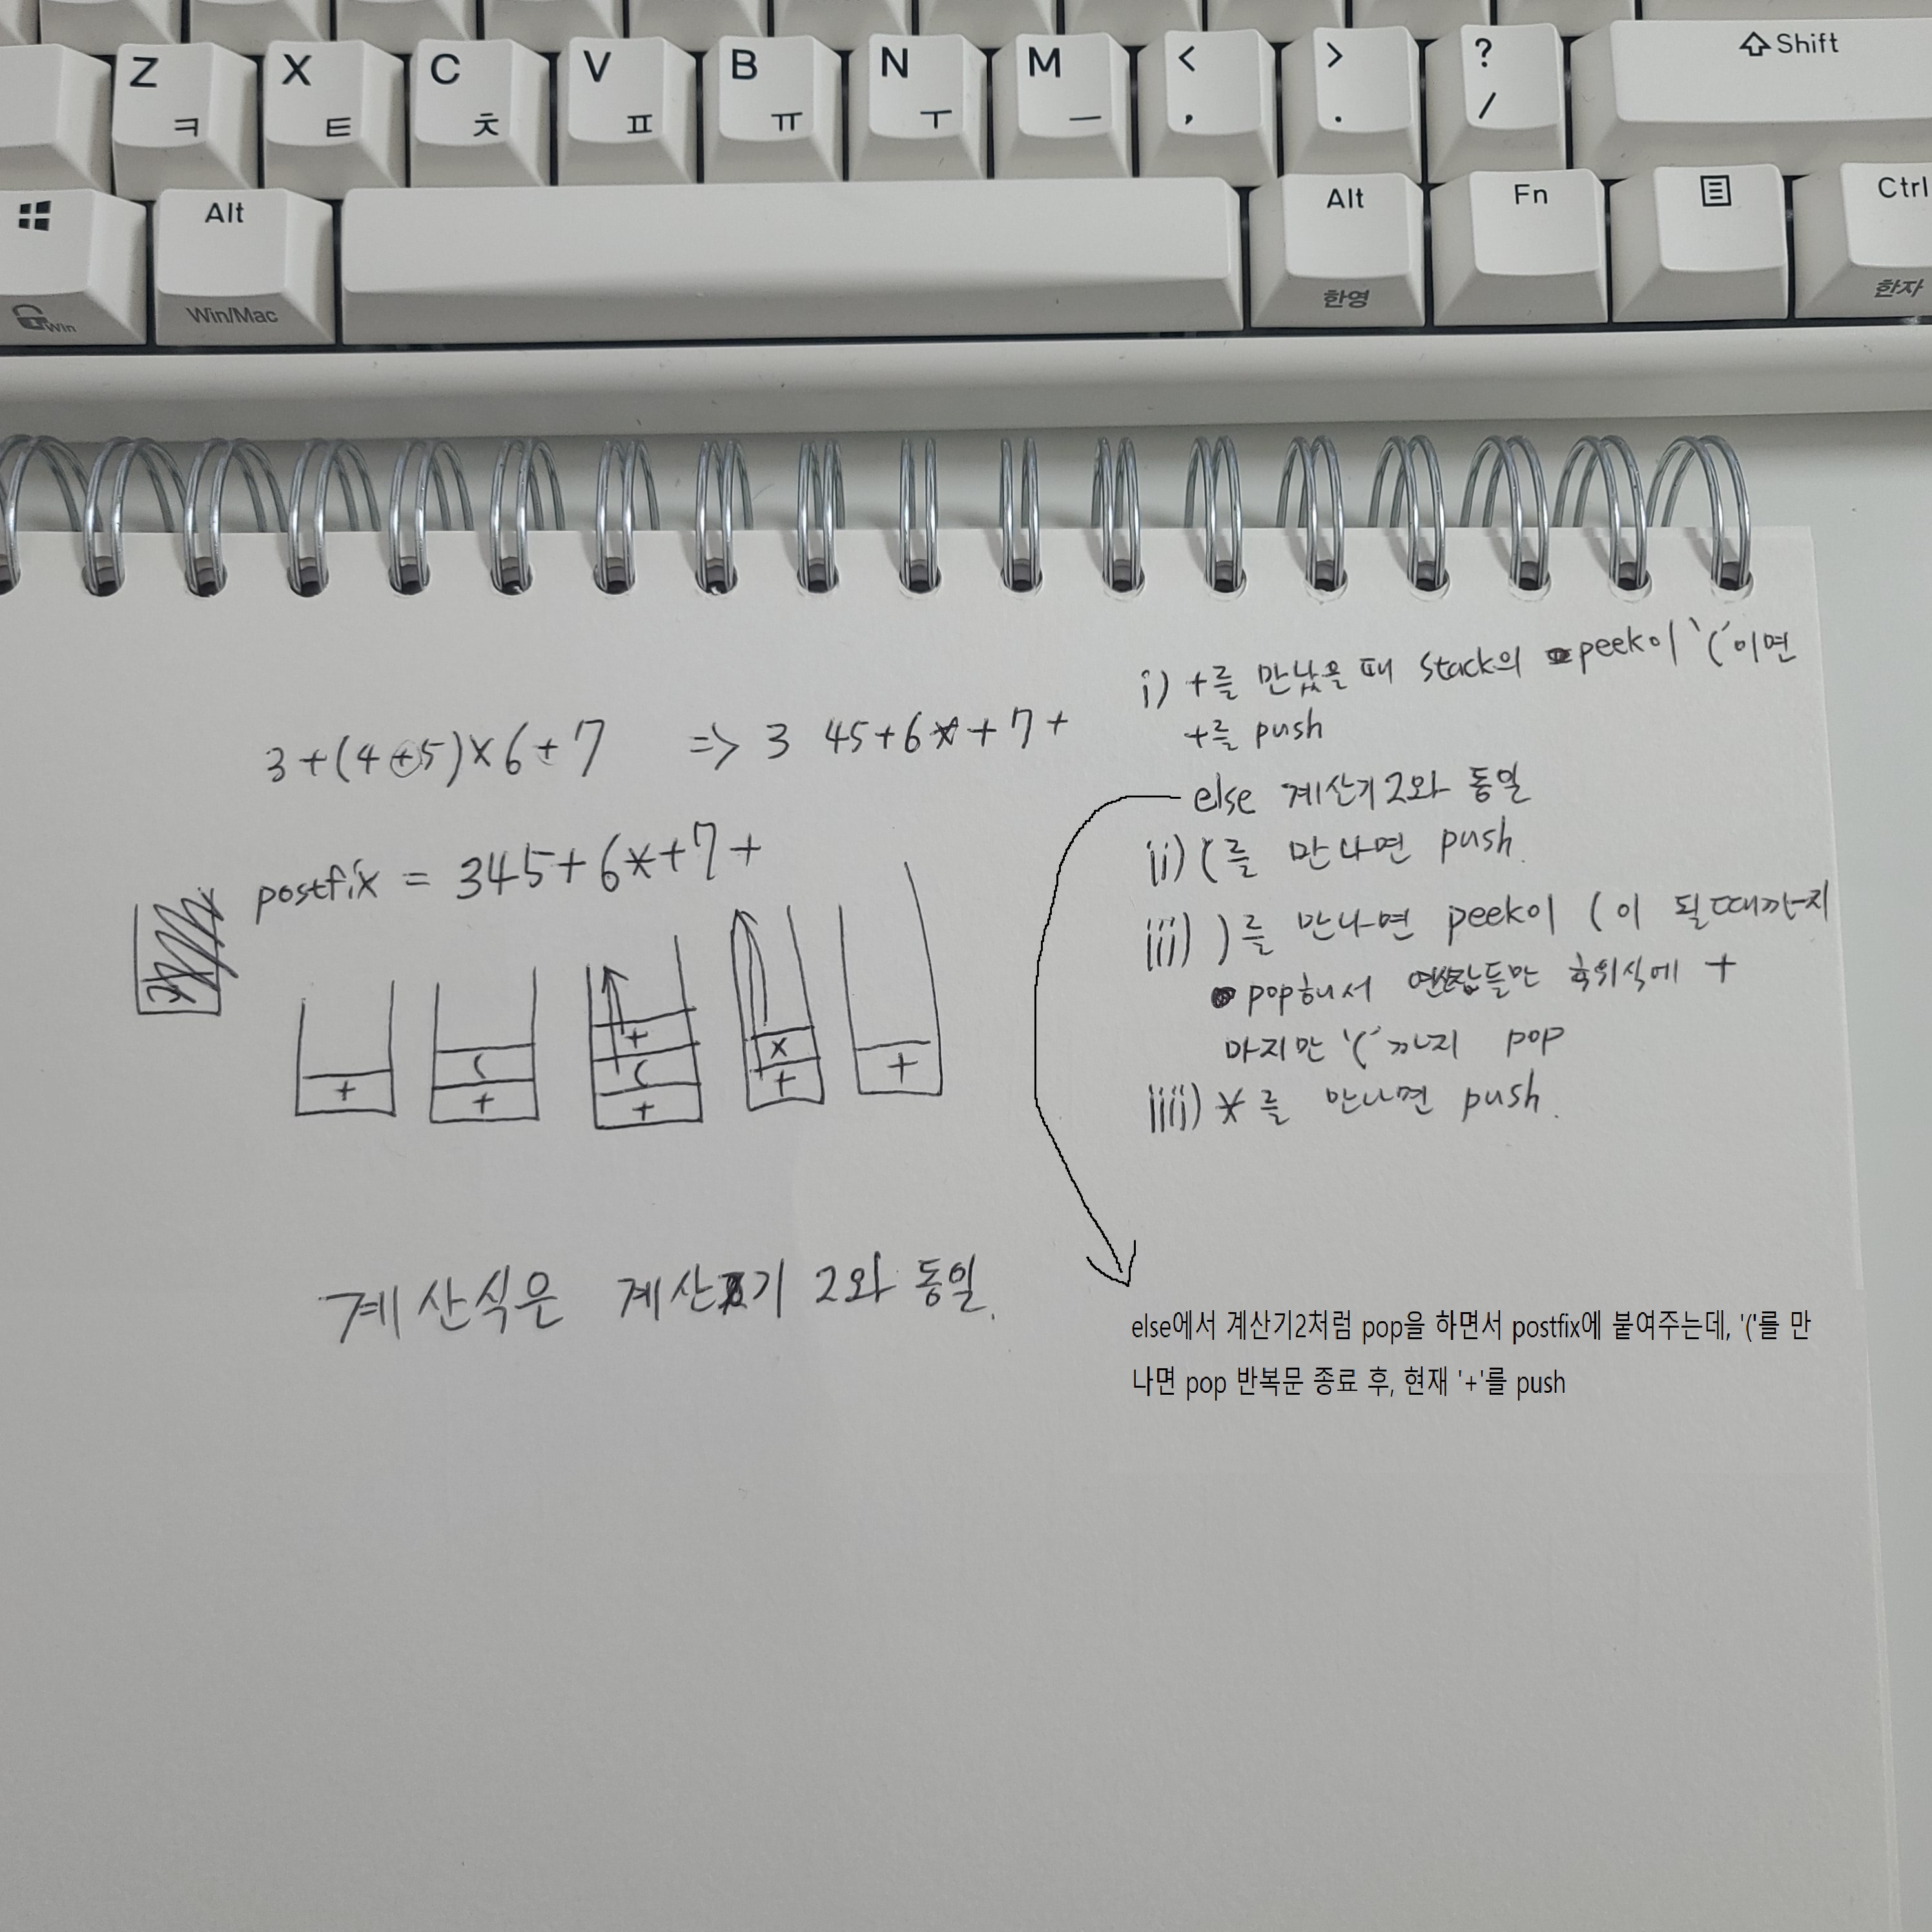 Z ㅋ X ㅌ C ㅊ V ㅍ B ㅠ N ㅜ M ㅡ < , > . ? / Shift
Alt Alt Fn Ctrl
Win Win/Mac 한영 한자
3+(4+5)×6+7 => 3 45+6*+7+
postfix = 345+6*+7+
+
( +
+ ( +
× +
+
계산식은 계산기 2와 동일.
i) +를 만났을 때 stack의 peek이 '('이면
+를 push
else 계산기2와 동일
ii) (를 만나면 push.
iii) )를 만나면 peek이 (이 될때까지
pop해서 연산자들만 후위식에 +
마지만 '('까지 pop
iiii) *를 만나면 push.
else에서 계산기2처럼 pop을 하면서 postfix에 붙여주는데, '('를 만
나면 pop 반복문 종료 후, 현재 '+'를 push